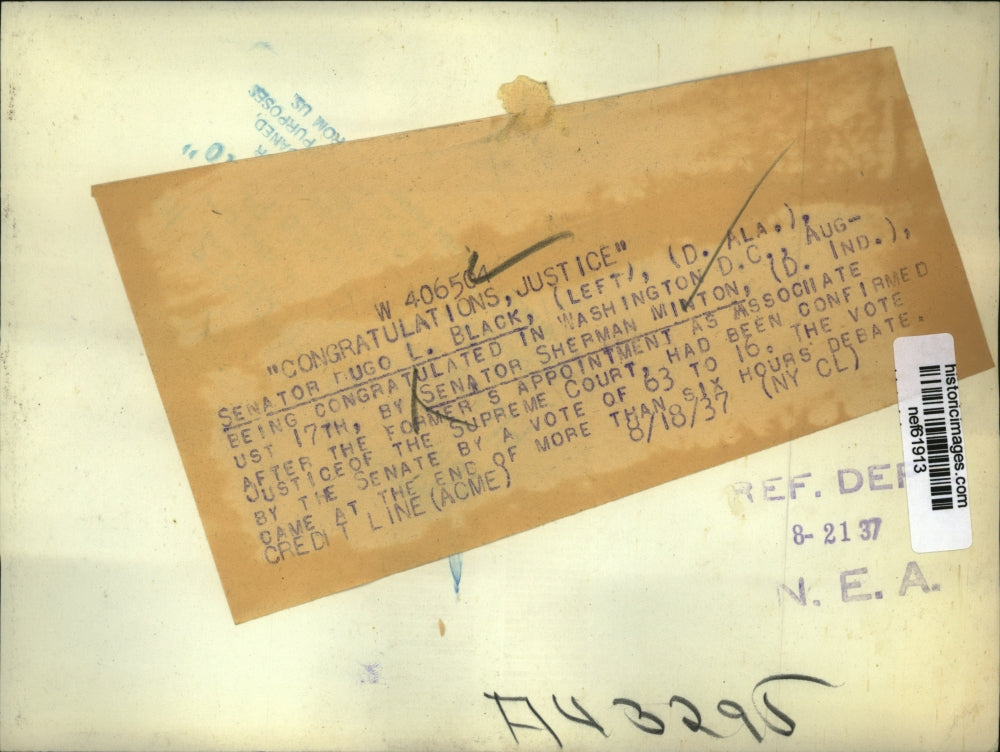 PURPOSES
ROM US.
W 406504
"CONGRATULATIONS, JUSTICE"
SENATOR HUGO L. BLACK, (LEFT), (D. ALA.),
BEING CONGRATULATED IN WASHINGTON D.C., AUG-
UST 17TH, BY SENATOR SHERMAN MINTON, (D. IND.),
AFTER THE FORMER'S APPOINTMENT AS ASSOCIATE
JUSTICE OF THE SUPREME COURT, HAD BEEN CONFIRMED
BY THE SENATE BY A VOTE OF 63 TO 16. THE VOTE
CAME AT THE END OF MORE THAN SIX HOURS DEBATE.
CREDIT LINE (ACME) 8/18/37 (NY CL)
historicimages.com
nef61913
REF. DEP
8-21 37
N. E. A.
A43295